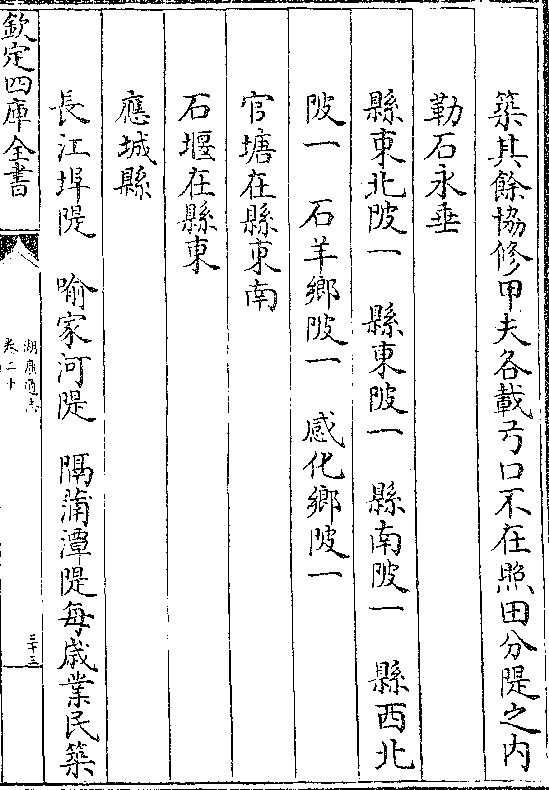 築其餘協修甲夫各載弓口不在照田分隄之内
勒石永垂
縣東北陂一　縣東陂一　縣南陂一　縣西北
陂一　石羊鄉陂一　感化鄉陂一
官塘在縣東南
石堰在縣東
應城縣
長江埠隄　喻家河隄　隔蒲潭隄每歲業民築
欽定四庫全書
湖廣通志
卷二十
三十三